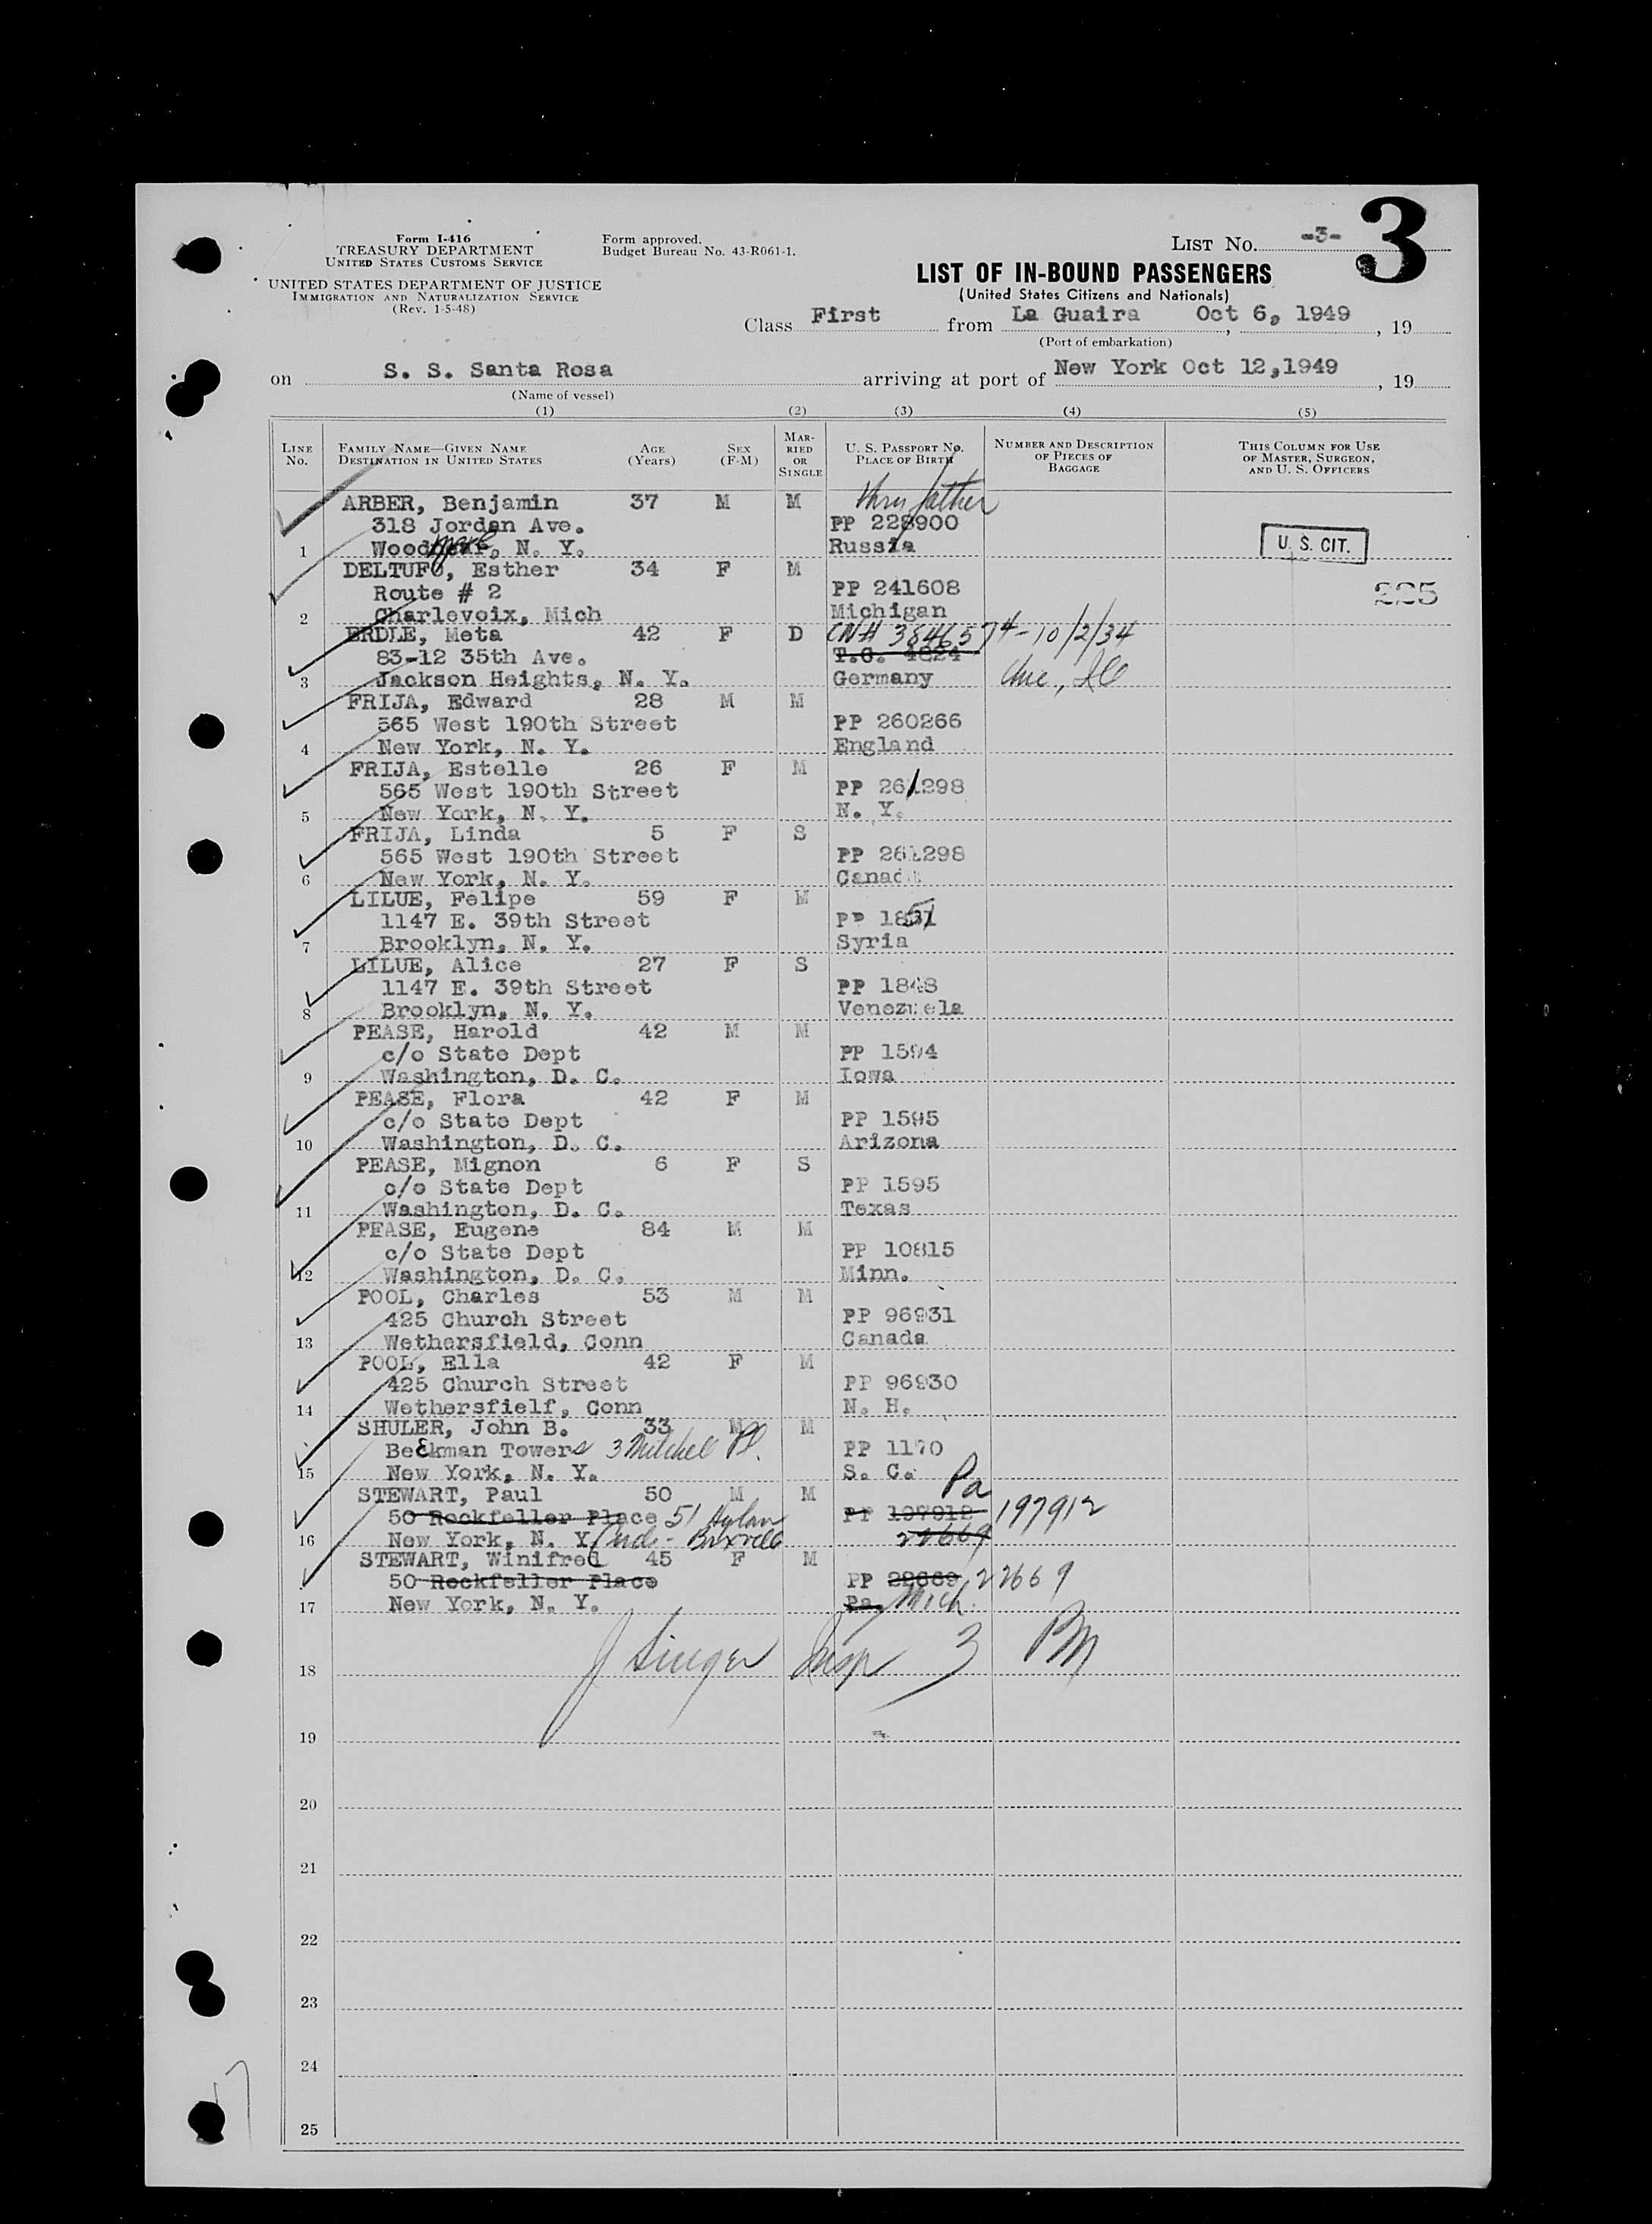 3
Form I-416
TREASURY DEPARTMENT
UNITED STATES CUSTOMS SERVICE
UNITED STATES DEPARTMENT OF JUSTICE
IMMIGRATION AND NATURALIZATION SERVICE
(Rev. 1-5-48)
Form approved.
Budget Bureau No. 43-R061-1.
LIST NO. -3-
LIST OF IN-BOUND PASSENGERS
(United States Citizens and Nationals)
Class First from La Guaira Oct 6, 1949, 19
(Port of embarkation)
on S. S. Santa Rosa arriving at port of New York Oct 12,1949, 19
(Name of vessel)
(1) (2) (3) (4) (5)
LINE No. FAMILY NAME—GIVEN NAME DESTINATION IN UNITED STATES AGE (Years) SEX (F-M) MARRIED OR SINGLE U. S. PASSPORT NO. PLACE OF BIRTH NUMBER AND DESCRIPTION OF PIECES OF BAGGAGE THIS COLUMN FOR USE OF MASTER, SURGEON, AND U. S. OFFICERS
ARBER, Benjamin 37 M M thru father
318 Jordan Ave. PP 228900
1 Woodmere, N. Y. Russia U. S. CIT.
DELTUFO, Esther 34 F M
Route # 2 PP 241608 225
2 Charlevoix, Mich Michigan
ERDLE, Meta 42 F D CN# 3846574-10/2/34
83-12 35th Ave. T.C. 4824
3 Jackson Heights, N. Y. Germany
FRIJA, Edward 28 M M
565 West 190th Street PP 260266
4 New York, N. Y. England
FRIJA, Estelle 26 F M
565 West 190th Street PP 261298
5 New York, N. Y. N. Y.
FRIJA, Linda 5 F S
565 West 190th Street PP 261298
6 New York, N. Y. Canada
LILUE, Felipe 59 F M
1147 E. 39th Street PP 1851
7 Brooklyn, N. Y. Syria
LILUE, Alice 27 F S
1147 E. 39th Street PP 1848
8 Brooklyn, N. Y. Venezuela
PEASE, Harold 42 M M
c/o State Dept PP 1594
9 Washington, D. C. Iowa
PEASE, Flora 42 F M
c/o State Dept PP 1595
10 Washington, D. C. Arizona
PEASE, Mignon 6 F S
c/o State Dept PP 1595
11 Washington, D. C. Texas
PEASE, Eugene 84 M M
c/o State Dept PP 10815
12 Washington, D. C. Minn.
POOL, Charles 53 M M
425 Church Street PP 96931
13 Wethersfield, Conn Canada
POOL, Ella 42 F M
425 Church Street PP 96930
14 Wethersfielf, Conn N. H.
SHULER, John B. 33 M M
Beekman Towers 3 Mitchell Pl. PP 1170
15 New York, N. Y. S. C.
STEWART, Paul 50 M M Pa
50 Rockfeller Place 51 PP 197912 197912
16 New York, N. Y. 22669
STEWART, Winifred 45 F M
50 Rockfeller Place PP 22669 22669
17 New York, N. Y. Pa. Mich.
18 J Singer Insp 3 PM
19
20
21
22
23
24
25